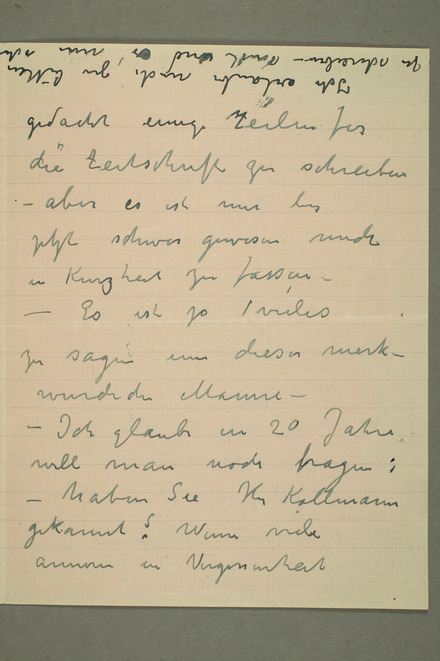 gedacht einige Zeilen für
die Zeitschrift zu schreiben
– aber es ist mir bis
jetzt schwer gewesen mich
in Kurzheit zu fassen –
– Es ist so vieles
zu sagen um dieser merk–
würdiche Manne –
– Ich glaube in 20 Jahre
will man noch fragen:
– haben See Hr Kollmann
gekannt? Wenn viele
annore in Vergessenheit
Ich erlaube mich, zu bitten
zu schreiben – und